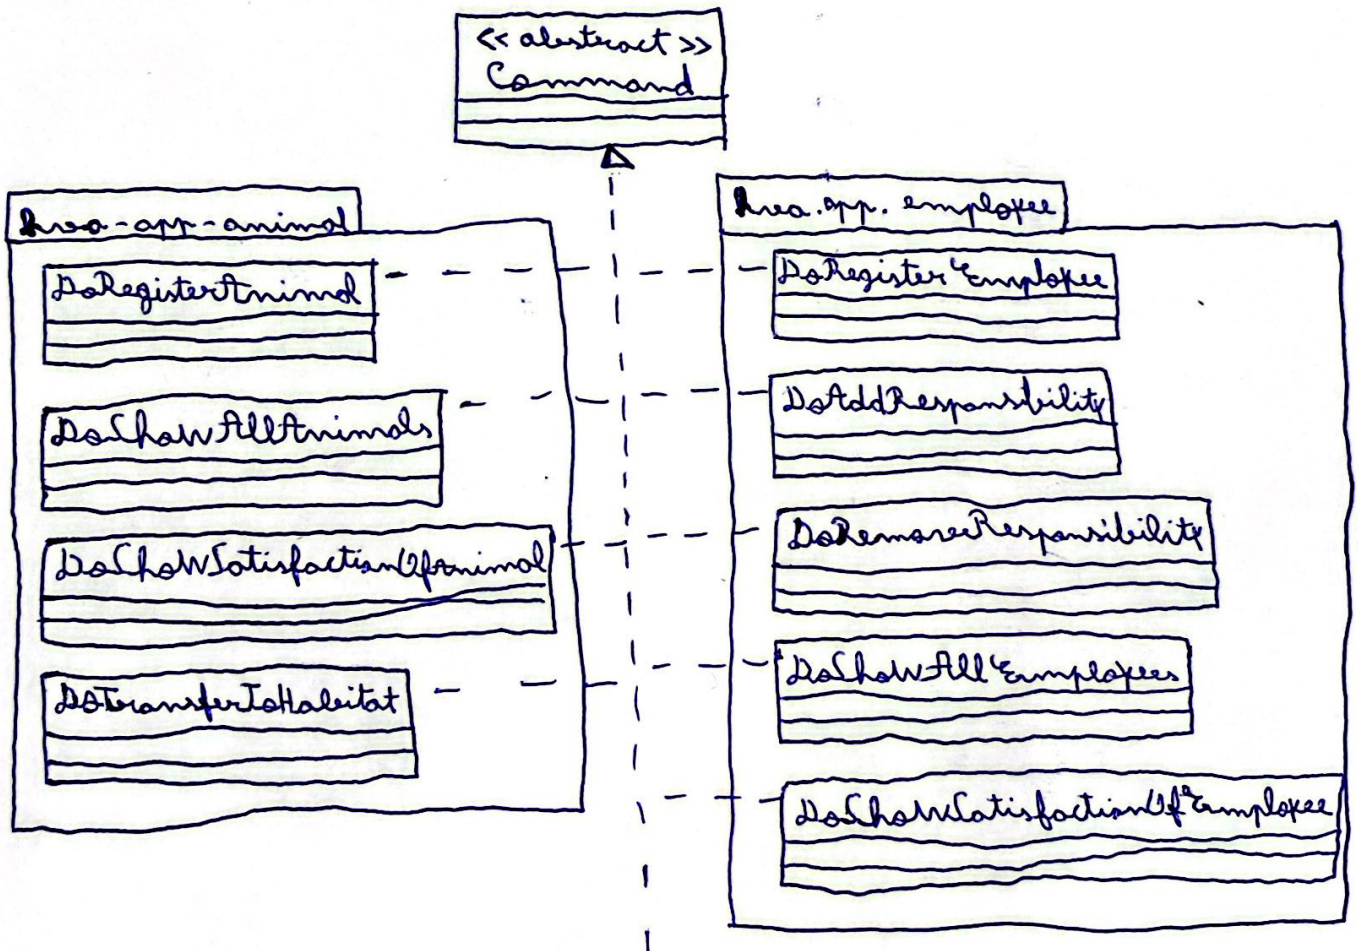 << abstract >>
Command
hva-app-animal
DoRegisterAnimal
DoShowAllAnimals
DoShowSatisfactionOfAnimal
DoTransferToHabitat
hva.app.employee
DoRegisterEmployee
DoAddResponsibility
DoRemoveResponsibility
DoShowAllEmployees
DoShowSatisfactionOfEmployee